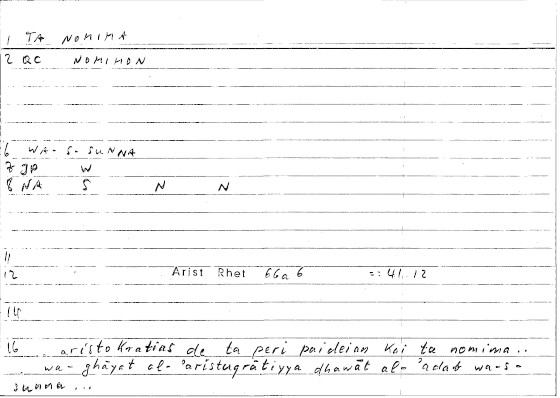 1 TA NOMIMA
2 QC NOMIMON
6 WA-S-SUNNA
7 JP W
8 NA S N N
11
12 Arist Rhet 66a6 =: 41.12
14
16 aristokratias de ta peri paideian kai ta nomima..
wa-ghāyat al-'aristuqrātiyya dhawāt al-'adab wa-s-
sunna...